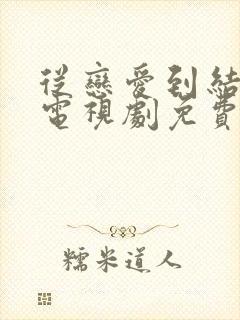 從戀愛到結
電視劇免費
糯米道人